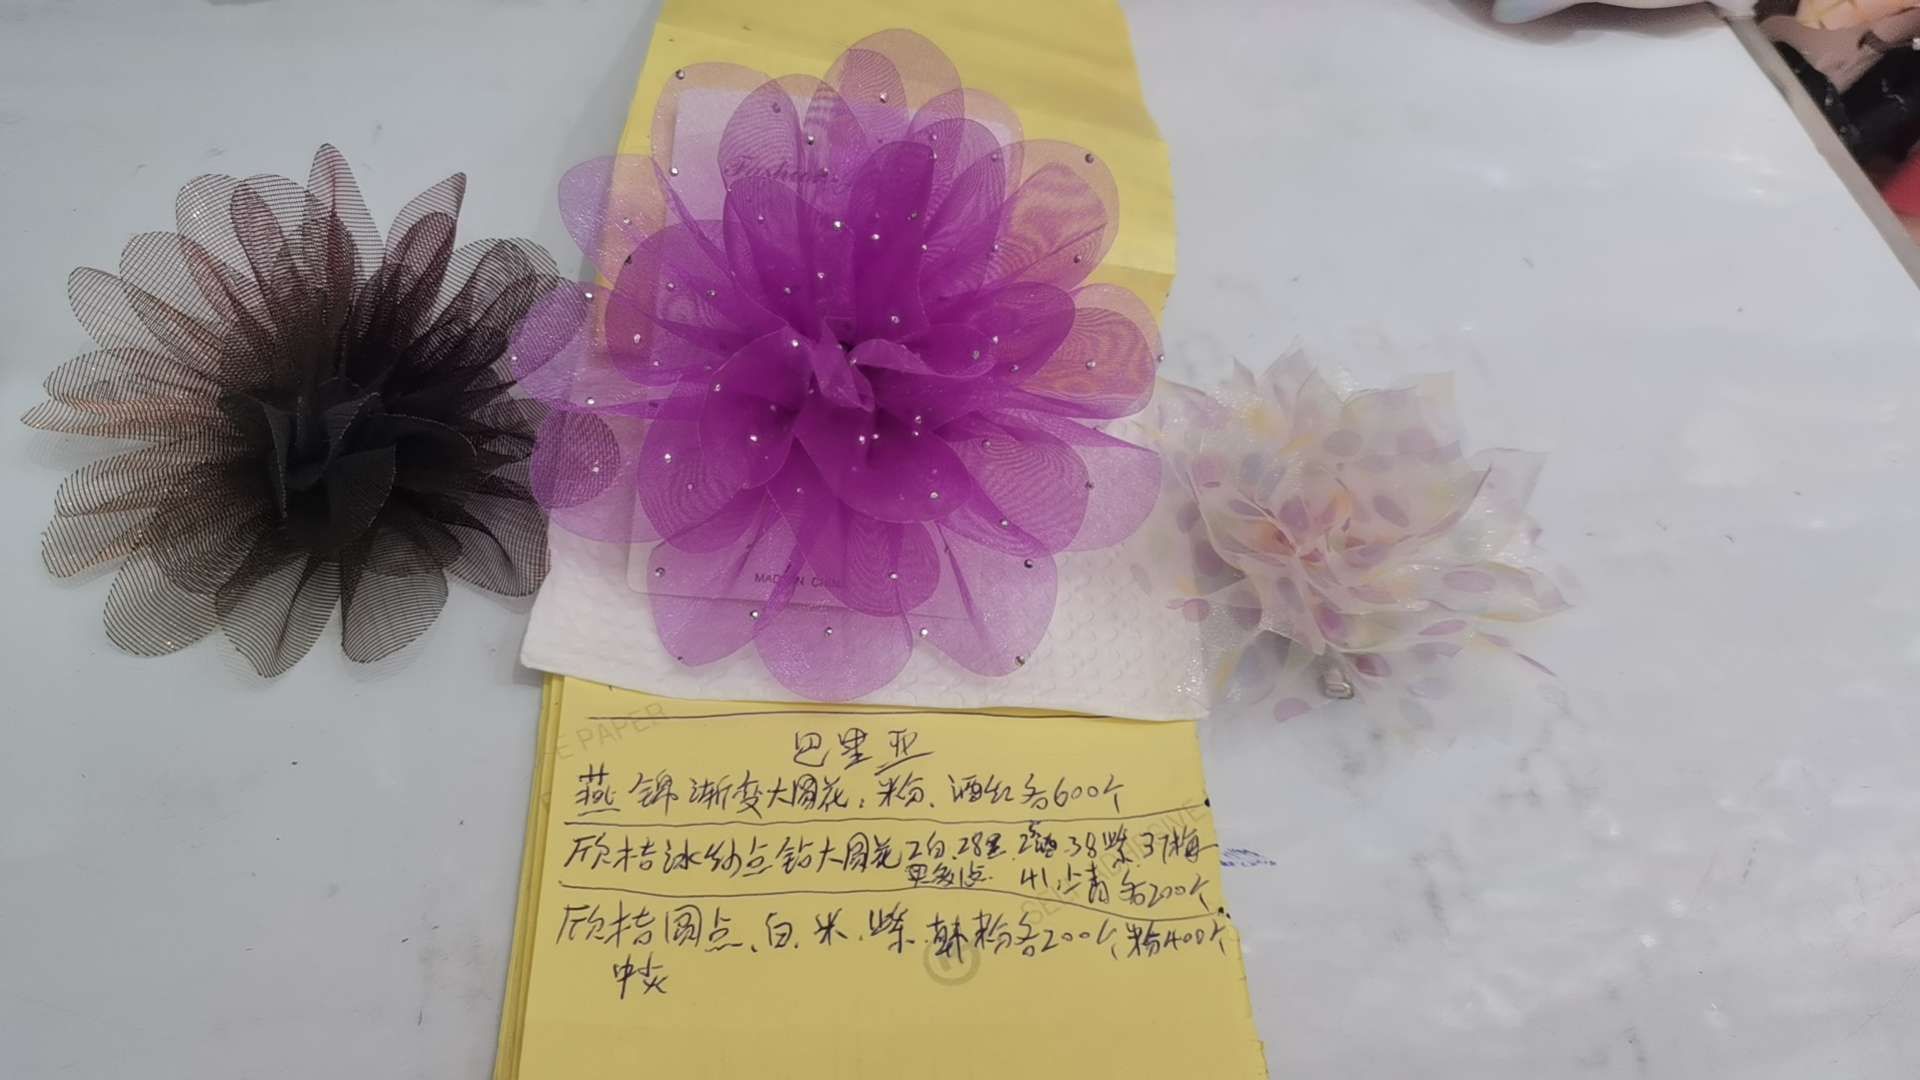 Fashion
MADE IN CHINA
E PAPER
巴里亚
燕锦渐变大圆花:粉、酒红各600个
欣桔冰纱点钻大圆花 2白.28黑.25酒.38紫 37梅
黑多1点. 41.小青 各200个
SELF ADHESIVE
欣桔圆点、白.米.紫.韩粉各200个,粉400个
中灰